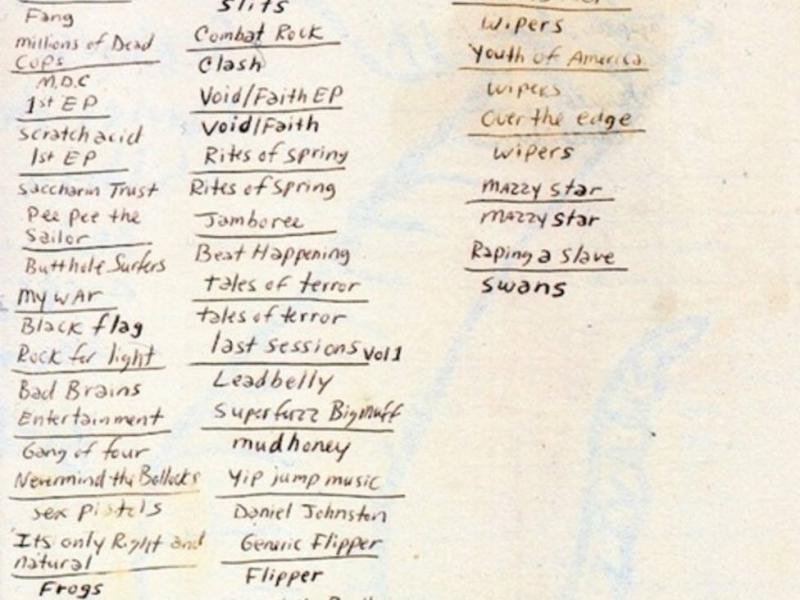 Fang
millions of Dead
Cops
M.D.C
1st EP
Scratch acid
1st EP
Saccharin Trust
Pee pee the
Sailor
Butthole Surfers
My wAr
Black flag
Rock for light
Bad Brains
Entertainment
Gang of four
Nevermind the Bollocks
sex pistols
Its only Right and
natural
Frogs
Slits
Combat Rock
Clash
Void/Faith EP
Void/Faith
Rites of Spring
Rites of Spring
Jamboree
Beat Happening
tales of terror
tales of terror
last sessions Vol 1
Leadbelly
Superfuzz Bigmuff
mudhoney
Yip jump music
Daniel Johnston
Generic Flipper
Flipper
Wipers
Youth of America
Wipers
Over the edge
Wipers
MAZZY Star
MAZZY Star
Raping a Slave
Swans